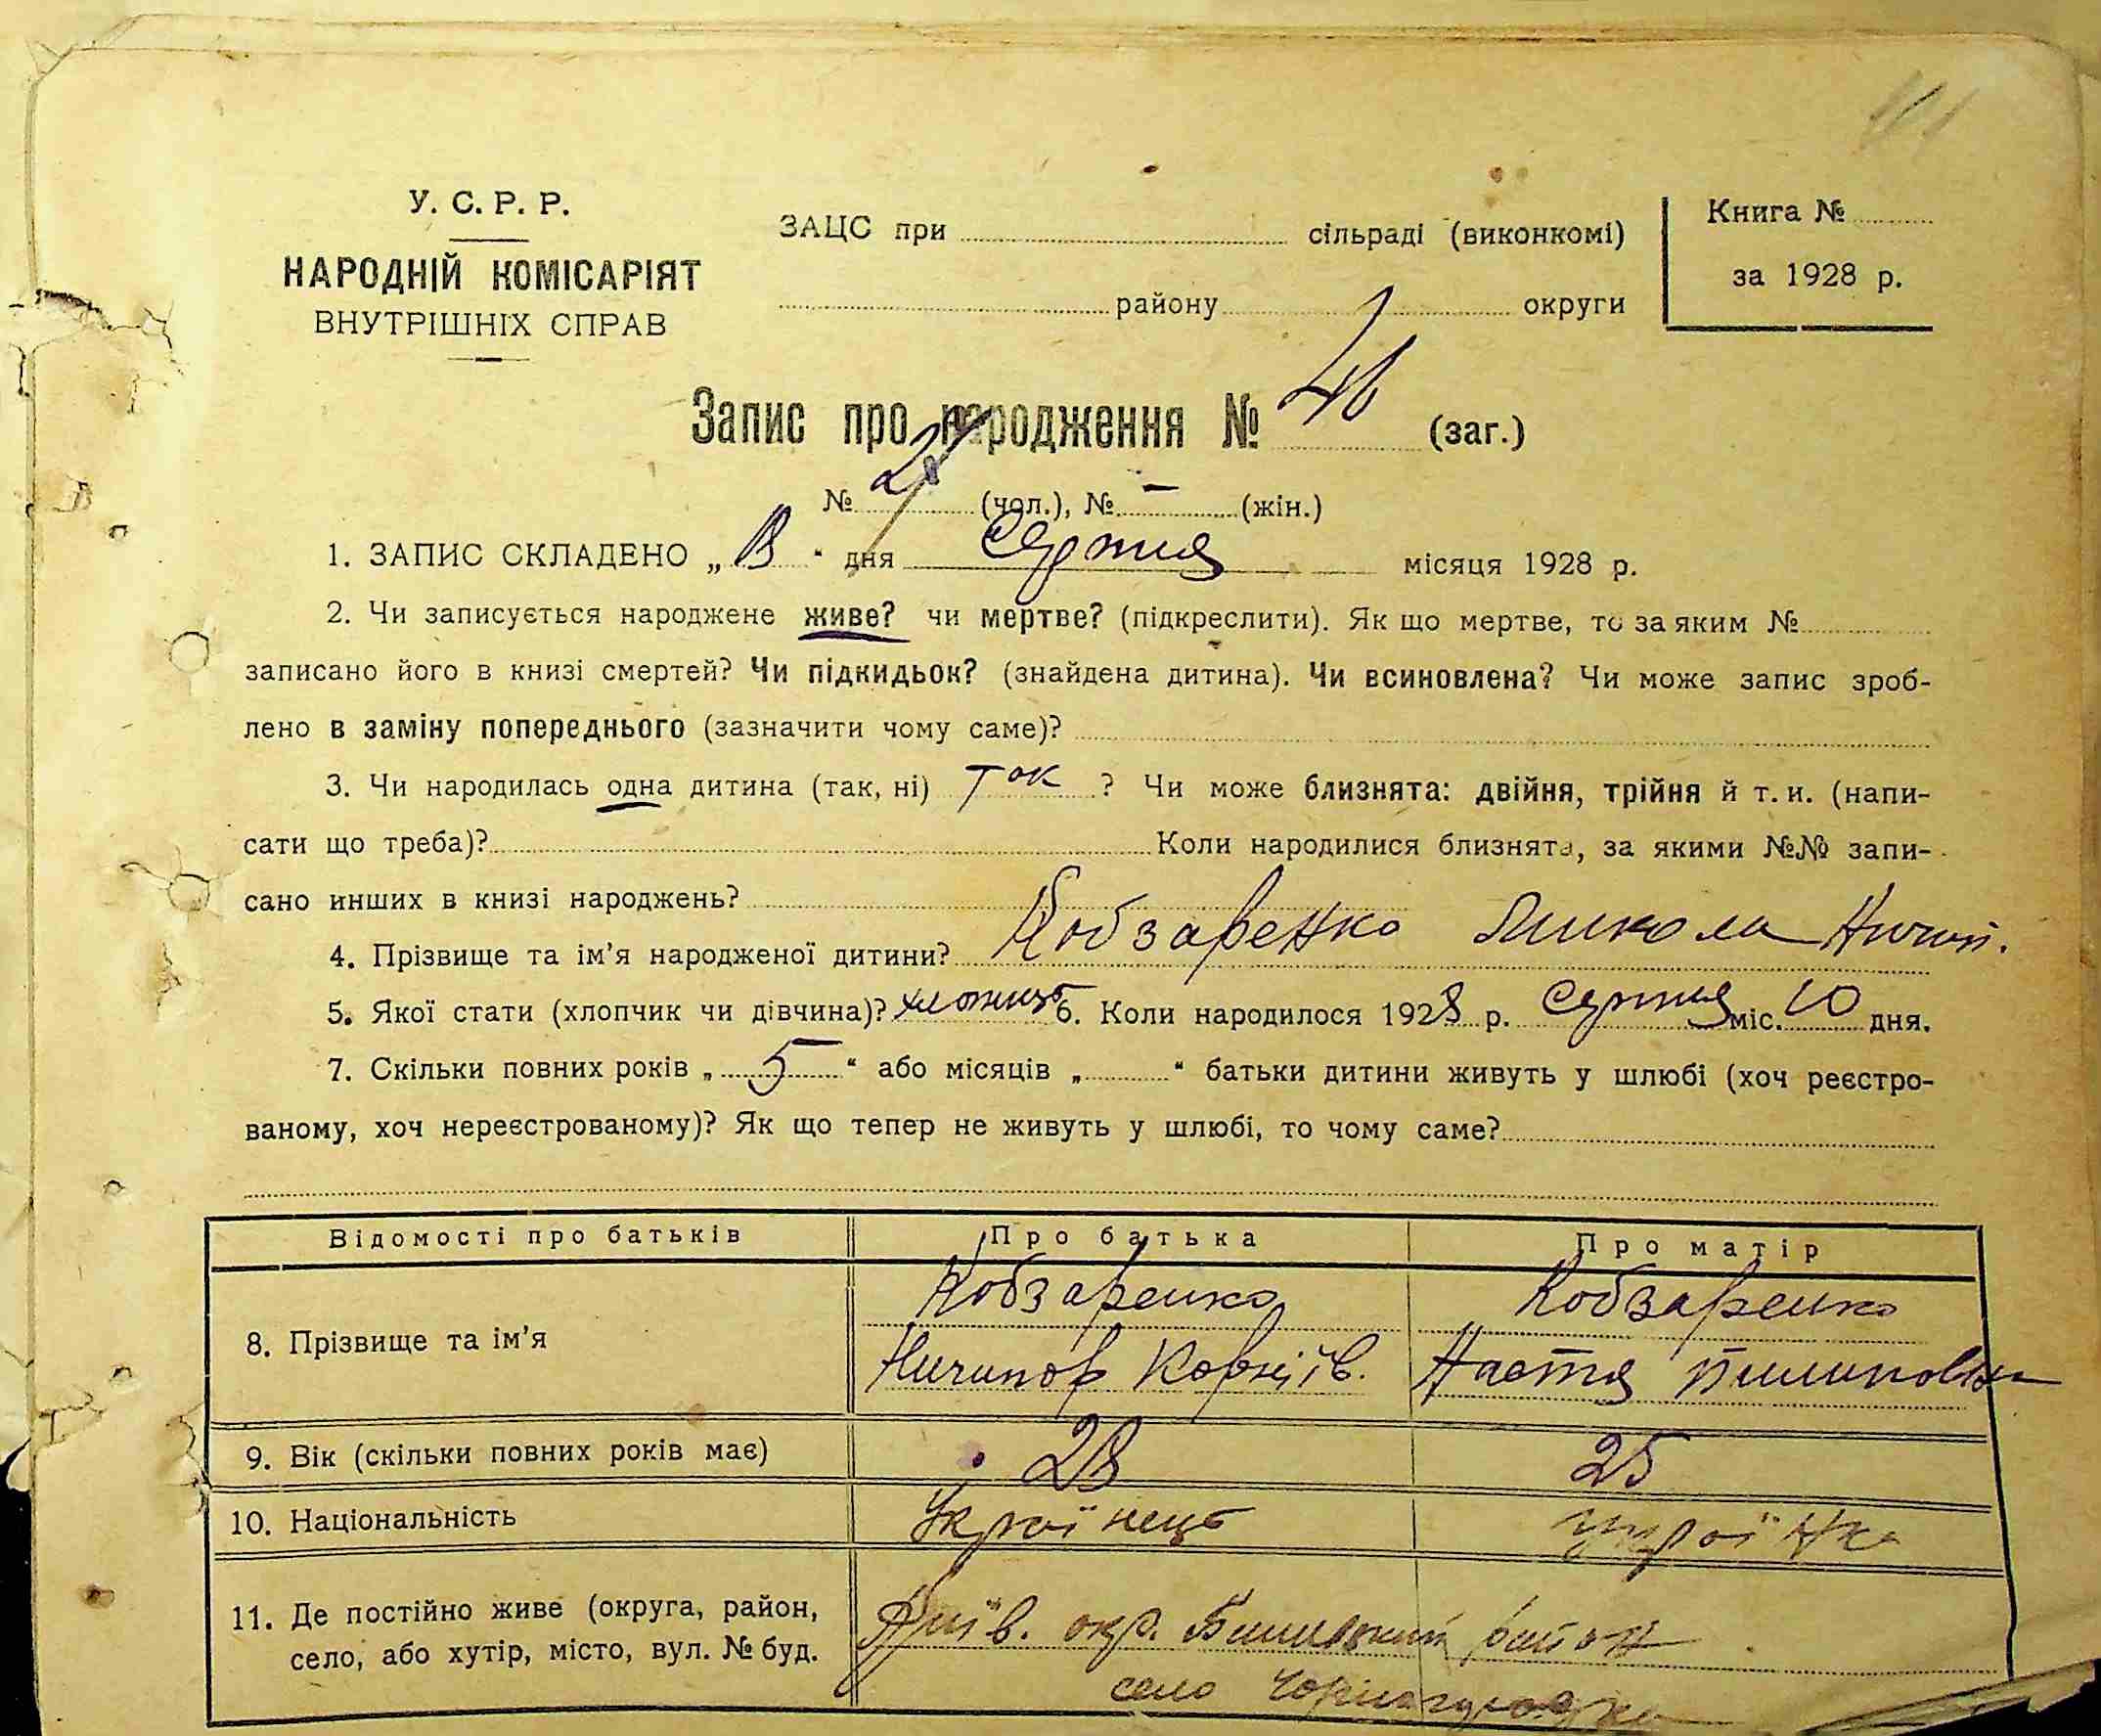 У. С. Р. Р.
НАРОДНІЙ КОМІСАРІЯТ
ВНУТРІШНІХ СПРАВ
ЗАЦС при сільраді (виконкомі)
району округи
Книга №
за 1928 р.
Запис про народження № (заг.)
№ (чол.), № – (жін.)
1. ЗАПИС СКЛАДЕНО „ “ дня Серпня місяця 1928 р.
2. Чи записується народжене живе? чи мертве? (підкреслити). Як що мертве, то за яким №
записано його в книзі смертей? Чи підкидьок? (знайдена дитина). Чи всиновлена? Чи може запис зроб-
лено в заміну попереднього (зазначити чому саме)?
3. Чи народилась одна дитина (так, ні) так ? Чи може близнята: двійня, трійня й т. и. (напи-
сати що треба)? Коли народилися близнята, за якими №№ запи-
сано инших в книзі народжень?
4. Прізвище та ім’я народженої дитини? Кобзаренко Микола Ничип.
5. Якої стати (хлопчик чи дівчина)? хлопець 6. Коли народилося 1928 р. Серпня міс. 10 дня.
7. Скільки повних років „ 5 “ або місяців „ “ батьки дитини живуть у шлюбі (хоч реєстро-
ваному, хоч нереєстрованому)? Як що тепер не живуть у шлюбі, то чому саме?
Відомості про батьків Про батька Про матір
8. Прізвище та ім’я
Кобзаренко
Ничипор Корніїв.
Кобзаренко
Настя Пилиповна
9. Вік (скільки повних років має) 28 25
10. Національність Украінець Украінка
11. Де постійно живе (округа, район,
село, або хутір, місто, вул. № буд.
Київ. окр. район
село